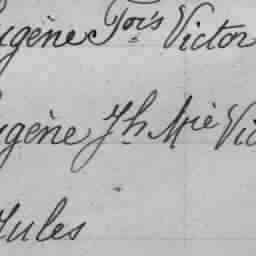 ugène Fois Victor
ugène Jh Mie Vic
Jules